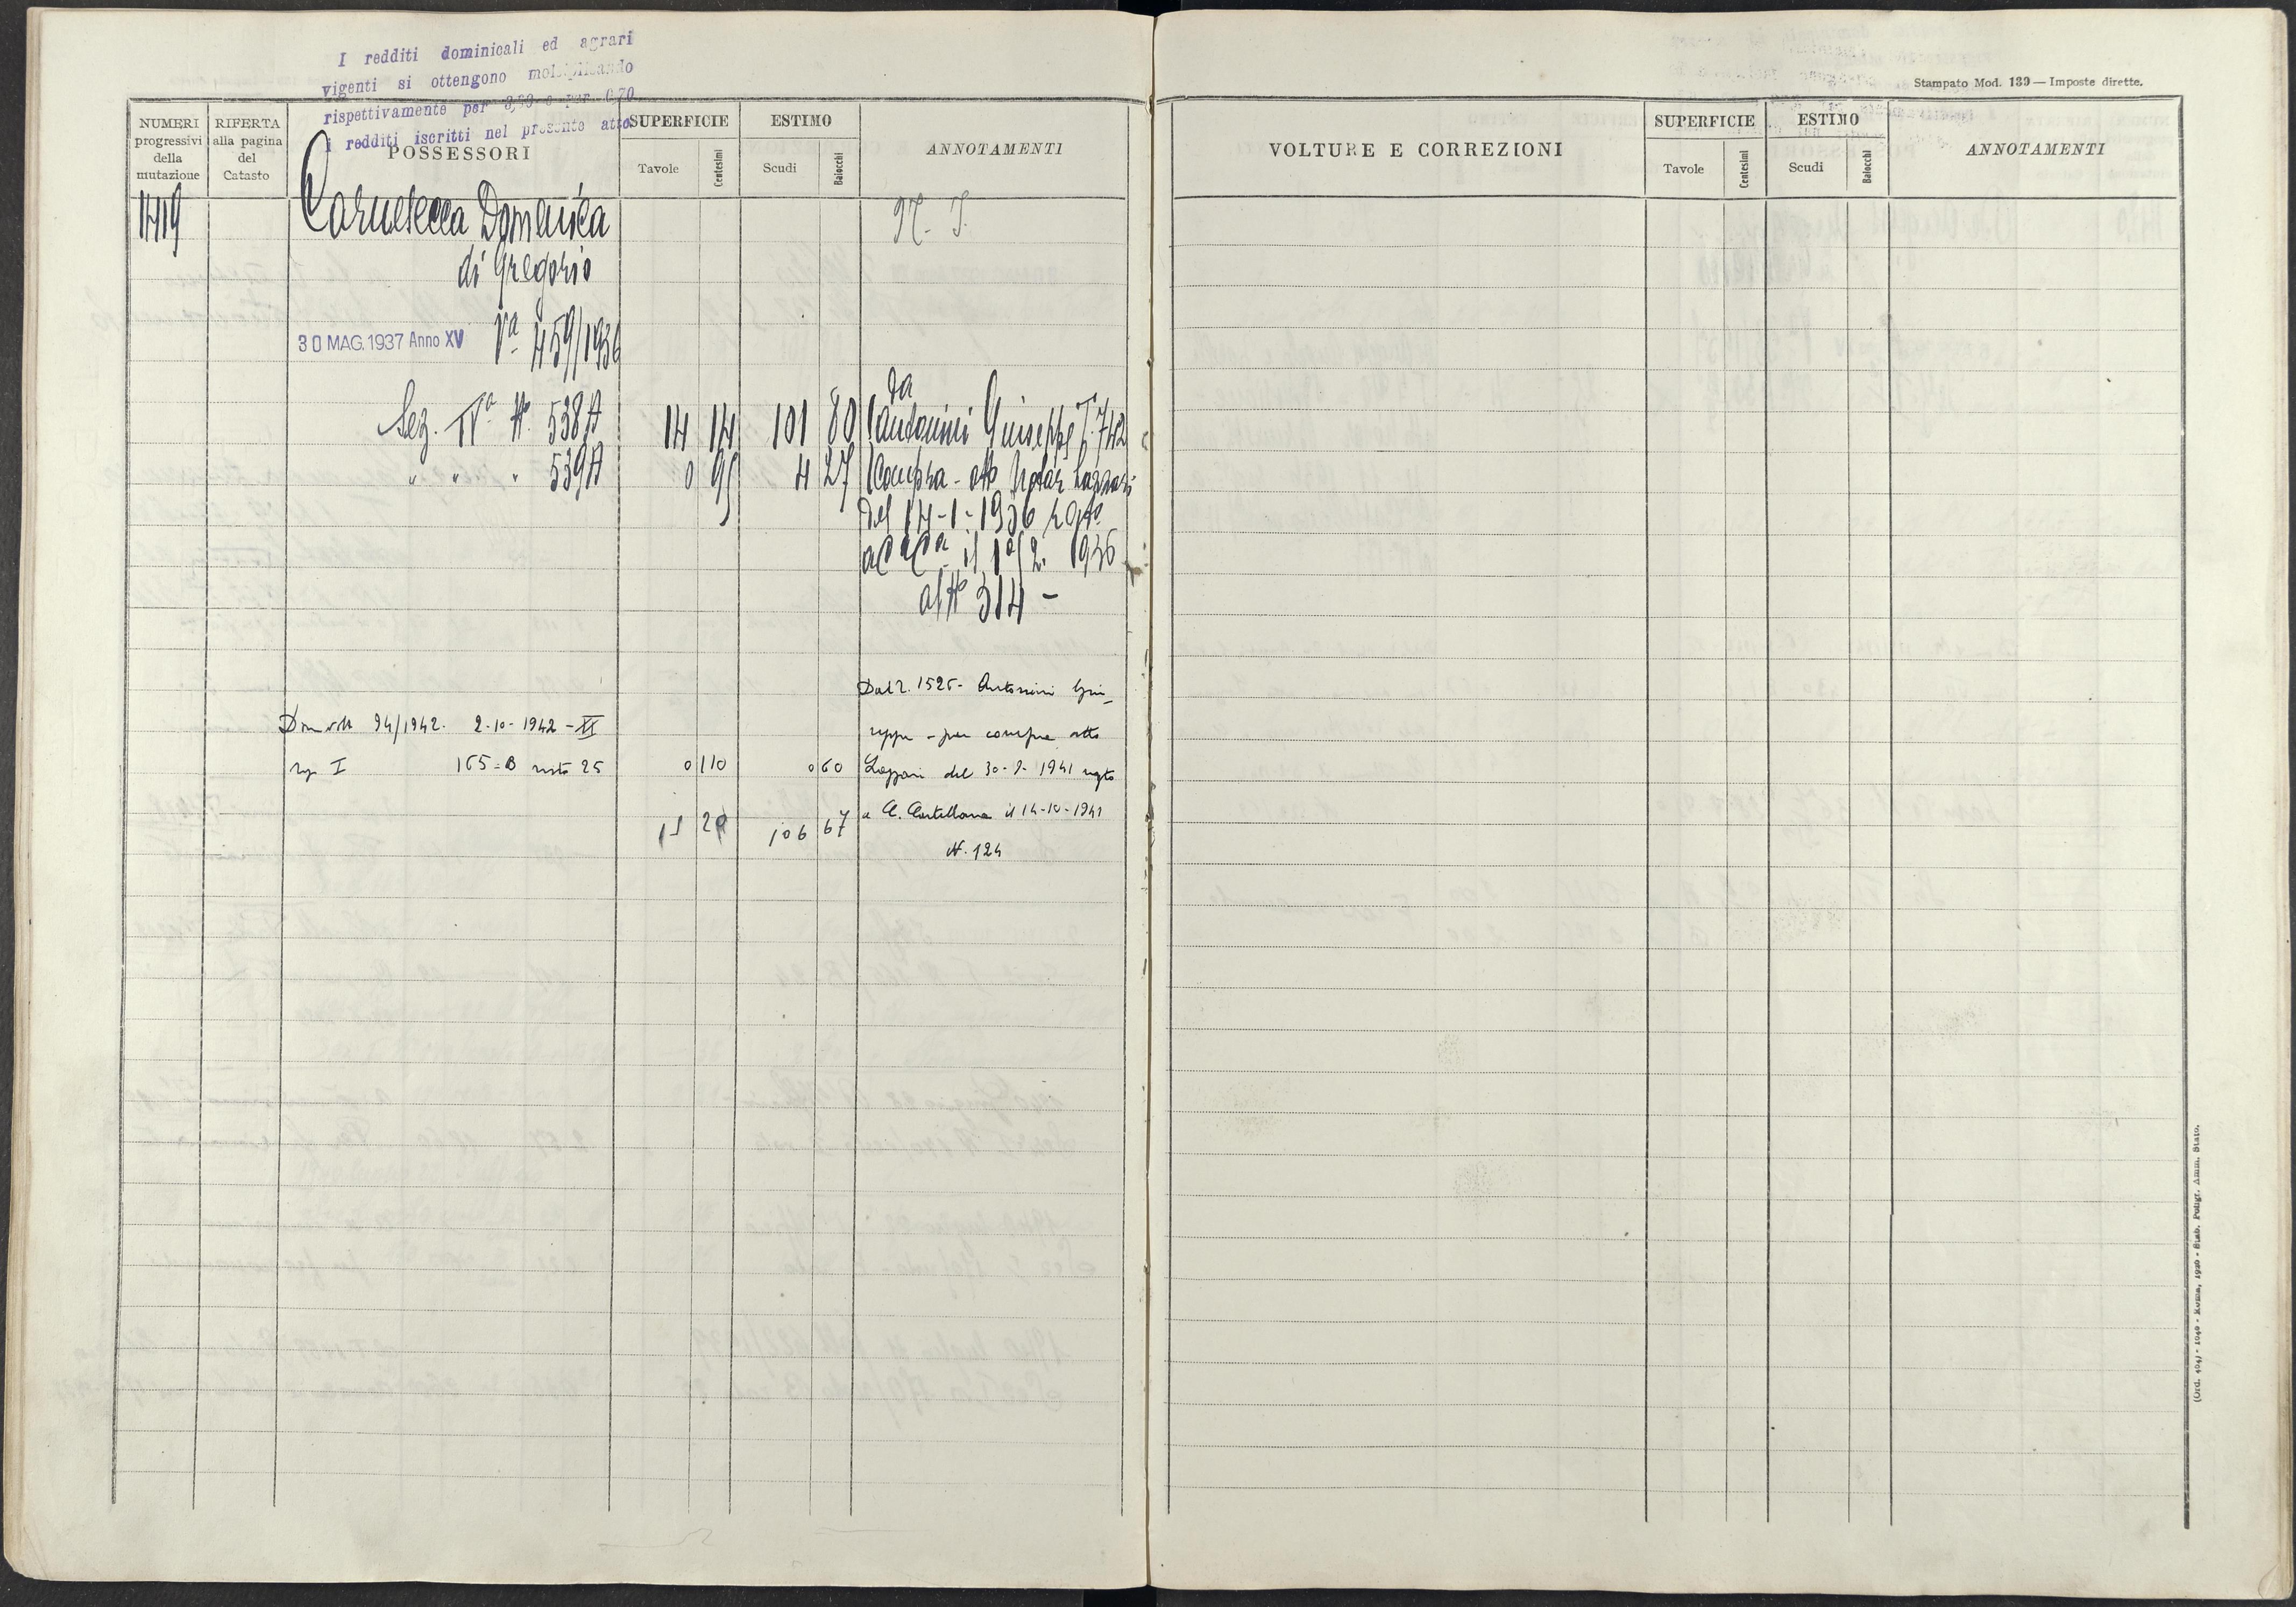 I redditi dominicali ed agrari
vigenti si ottengono moltiplicando
rispettivamente per 3,80 e per 0,70
i redditi iscritti nel presente atto.
NUMERI progressivi della mutazione
RIFERTA alla pagina del Catasto
POSSESSORI
SUPERFICIE
Tavole
Centesimi
ESTIMO
Scudi
Baiocchi
ANNOTAMENTI
Domenica
N. T.
di Gregorio
30 MAG. 1937 Anno XV Vª 459/1936
da
Sez. IVª Nº 538A 14 14 101 80 Antonini Giuseppe T. 742
" " " 539A 0 95 4 27 Compra - atto Notar Lazzari
del 14-1-1936 regto
a Cª Cª il 1º/2. 1936
al Nº 314 -
Dal 2. 1525 - Antonini Giu-
94/1942. 2-10-1942 - XX
seppe - per compra atto
I 165-B 25 0 110 0 60 Lazzari del 30-9-1941 regto
a C. Castellana il 14-10-1941
15 20 106 67
N. 124
Stampato Mod. 139 — Imposte dirette.
VOLTURE E CORREZIONI
SUPERFICIE
Tavole
Centesimi
ESTIMO
Scudi
Baiocchi
ANNOTAMENTI